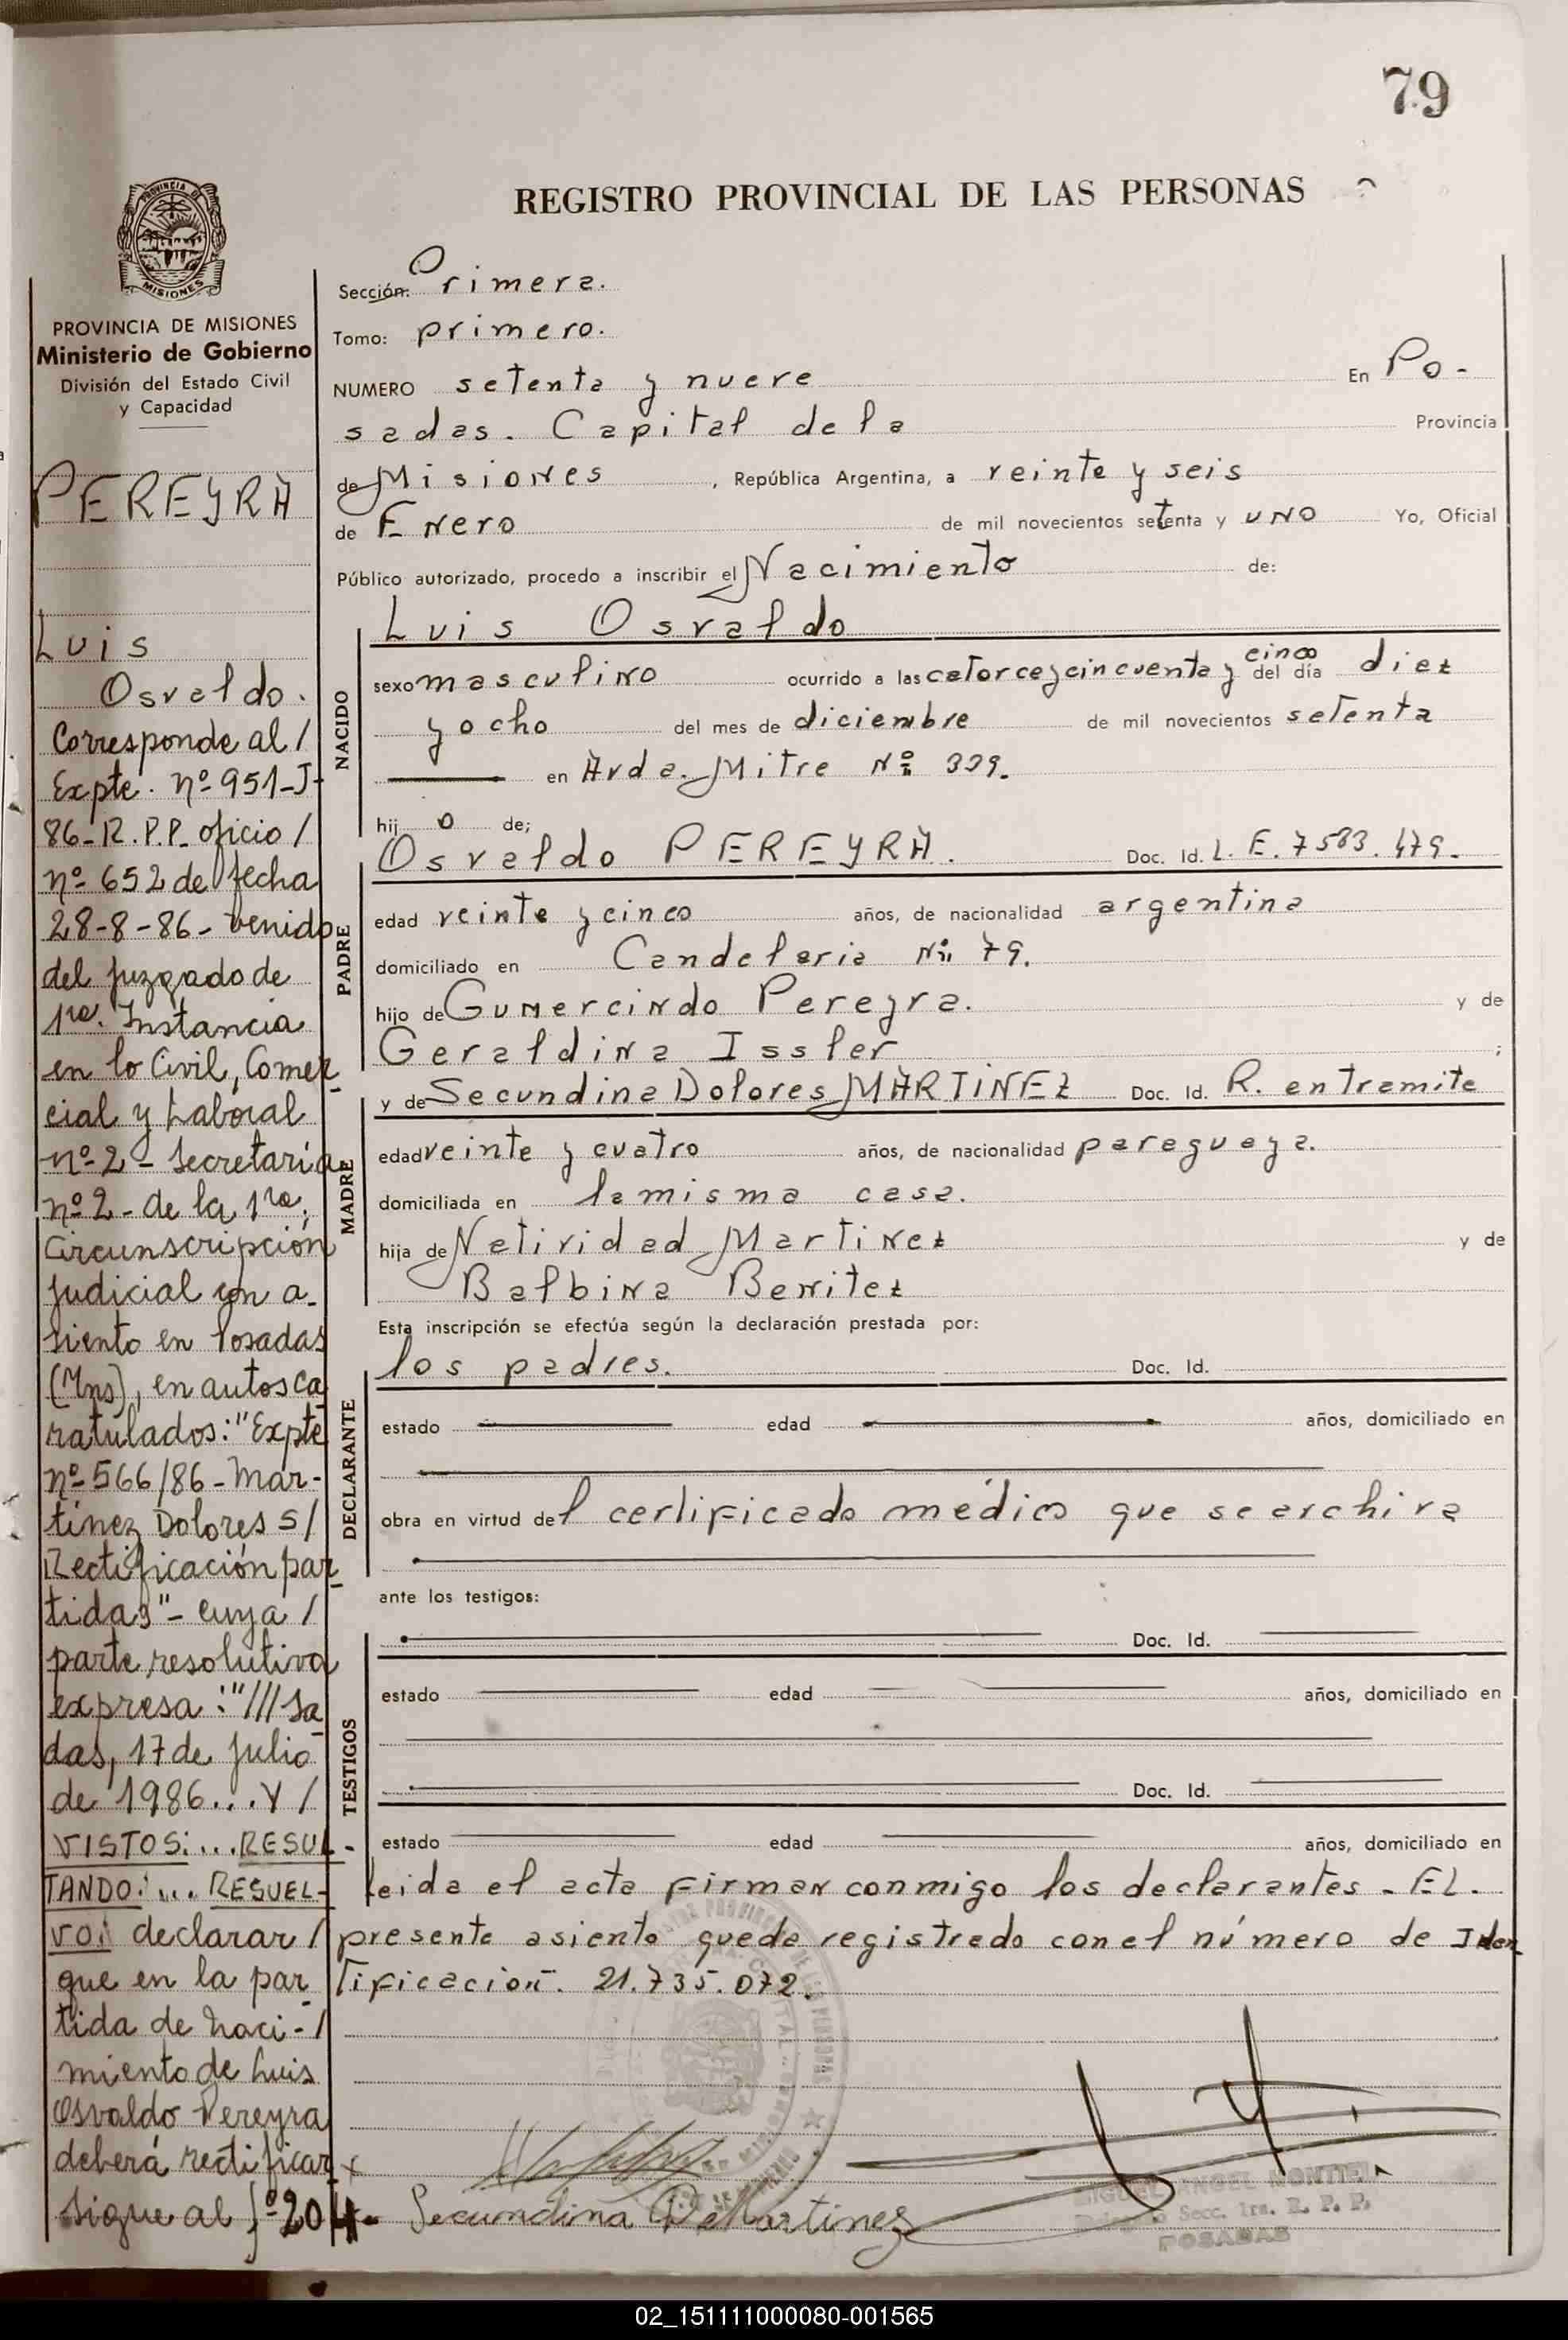 79
REGISTRO PROVINCIAL DE LAS PERSONAS
MISIONES
PROVINCIA DE MISIONES
Ministerio de Gobierno
División del Estado Civil
y Capacidad
PEREYRA
Luis
Osvaldo.
Corresponde al /
Expte. nº 951-J-
86-R.P.P. oficio /
nº 652 de fecha
28-8-86- venido
del juzgado de
1ra. Instancia
en lo Civil, Comer-
cial y Laboral
nº 2 - Secretaría
nº 2 - de la 1ra.
Circunscripción
judicial con a-
siento en Posadas
(Mns), en autos ca
ratulados: "Expte
nº 566/86 - Mar-
tínez Dolores S/
Rectificación par-
tidas" - cuya /
parte resolutiva
expresa: "///sa
das, 17 de julio
de 1986... Y /
VISTOS:... RESUL-
TANDO:... RESUEL-
VO: declarar /
que en la par
tida de naci- /
miento de Luis
Osvaldo Pereyra
deberá rectificar
sigue al fº 204.
Sección: Primera.
Tomo: primero.
NUMERO setenta y nueve En Po-
sadas. Capital de la Provincia
de Misiones, República Argentina, a veinte y seis
de Enero de mil novecientos setenta y uno Yo, Oficial
Público autorizado, procedo a inscribir el Nacimiento de:
Luis Osvaldo
NACIDO
sexo masculino ocurrido a las catorce y cincuenta y cinco del día diez
y ocho del mes de diciembre de mil novecientos setenta
en Avda. Mitre Nº 339.
hijo de;
Osvaldo PEREYRA. Doc. Id. L. E. 7583.479.
PADRE
edad veinte y cinco años, de nacionalidad argentina
domiciliado en Candelaria Nº 79.
hijo de Gumercindo Pereyra. y de
Geraldina Issler ;
y de Secundina Dolores MARTINEZ Doc. Id. R. en tramite
MADRE
edad veinte y cuatro años, de nacionalidad paraguaya.
domiciliada en la misma casa.
hija de Natividad Martinez y de
Balbina Benitez
Esta inscripción se efectúa según la declaración prestada por:
los padres. Doc. Id.
DECLARANTE
estado edad años, domiciliado en
obra en virtud del certificado médico que se archiva
ante los testigos:
Doc. Id.
TESTIGOS
estado edad años, domiciliado en
Doc. Id.
estado edad años, domiciliado en
leida el acta firman conmigo los declarantes - EL.
presente asiento queda registrado con el número de Iden
tificación. 21.735.072.
Secundina D de Martinez
MIGUEL ANGEL MONTIEL
Secc. 1ra. R. P. P.
POSADAS
02_151111000080-001565